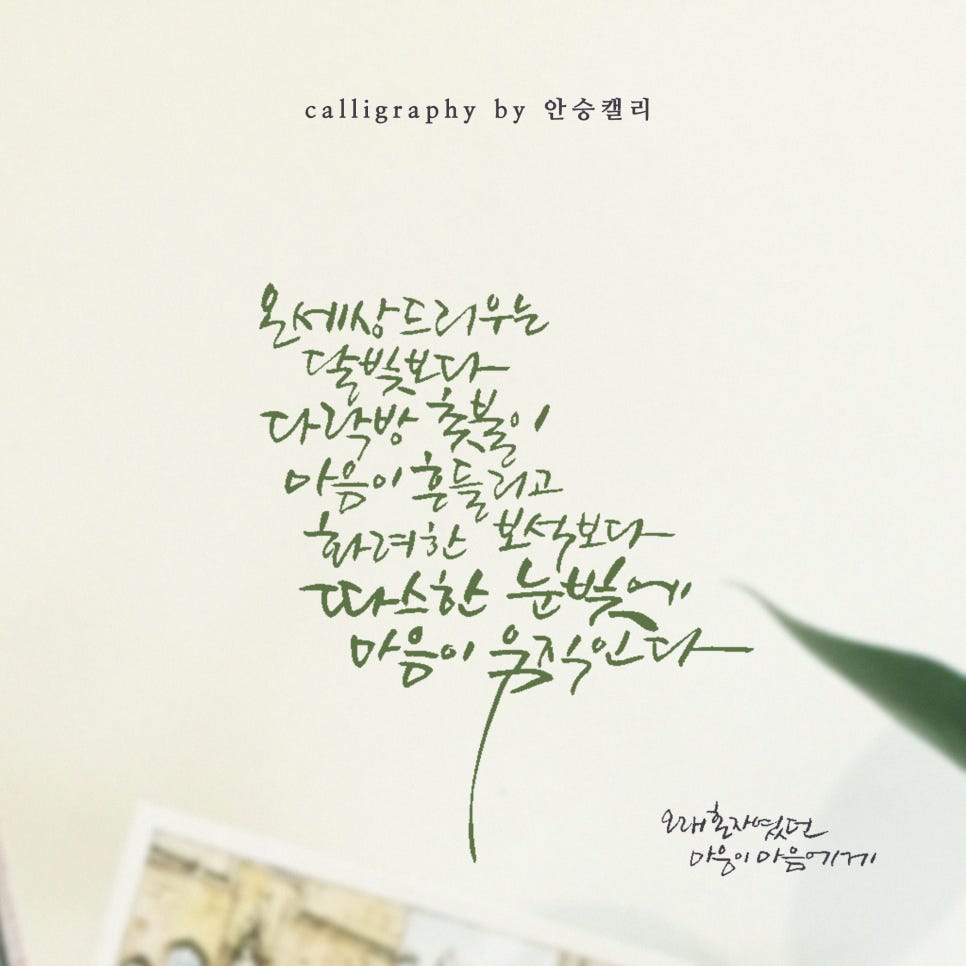 calligraphy by 안승캘리
온세상드리우는
달빛보다
다락방 촛불이
마음이 흔들리고
화려한 보석보다
따스한 눈빛에
마음이 움직인다
오래 혼자였던
마음이 마음에게